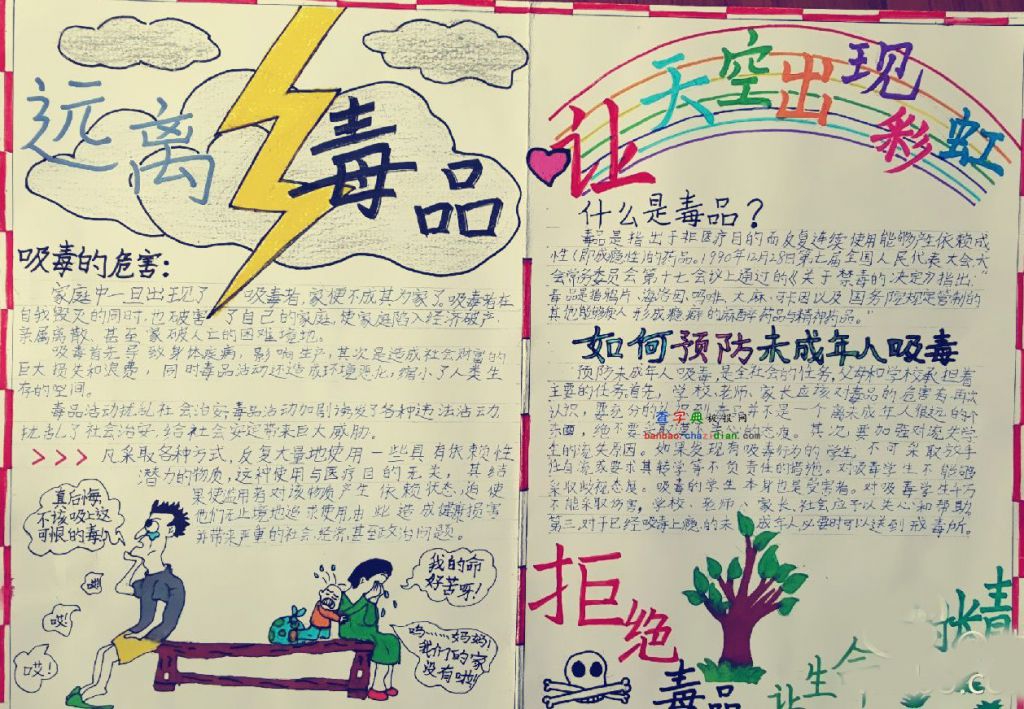 远离毒品
吸毒的危害:
家庭中一旦出现了 吸毒者,家便不成其为家了。吸毒者在
自我毁灭的同时,也破害了自己的家庭,使家庭陷入经济破产、
亲属离散、甚至家破人亡的困难境地。
吸毒首先导致身体疾病,影响生产,其次是造成社会财富的
巨大损失和浪费,同时毒品活动还造成环境恶化,缩小了人类生
存的空间。
毒品活动扰乱社会治安毒品活动加剧诱发了各种违法活动,
扰乱了社会治安,给社会安定带来巨大威胁。
>>>凡采取各种方式,反复大量地使用一些具有依赖性
潜力的物质,这种使用与医疗目的无关,其结
果使滥用者对该物质产生依赖状态,迫使
他们无止境地追求使用,由此造成健康损害
并带来严重的社会、经济甚至政治问题。
真后悔,
不该吸上这
可恨的毒品
哎!
哎!
我的命
好苦呀!
呜……妈妈,
我们的家
没有啦!
让天空出现彩虹
什么是毒品?
毒品是指出于非医疗目的而反复连续使用能够产生依赖成
性(即成瘾性)的药品。1990年12月28日第七届全国人民代表大会
常务委员会第十七会议上通过的《关于禁毒的决定》指出:“
毒品是指鸦片、海洛因、吗啡、大麻、可卡因以及国务院规定管制的
其他能够使人形成瘾癖的麻醉药品与精神药品。”
如何预防未成年人吸毒
预防未成年人吸毒,是全社会的任务,父母和学校承担着
主要的任务。首先,学校、老师、家长应该对毒品的危害有再次
认识,要充分的 并不是一个离未成年人很远的
东西,绝不要 态度。其次要加强对流失学
生的流失原因。如果发现有吸毒行为的学生,不可采取放手
任自流或要求其转学等不负责任的措施。对吸毒学生不能够
采取歧视态度。吸毒的学生本身也是受害者。对吸毒学生千万
不能采取伤害,学校、老师、家长、社会应予以关心和帮助。
第三,对于已经吸毒上瘾的未成年人必要时可以送到戒毒所。
查字典 板报网
banbao.chazidian.com
拒绝
毒品
让生命